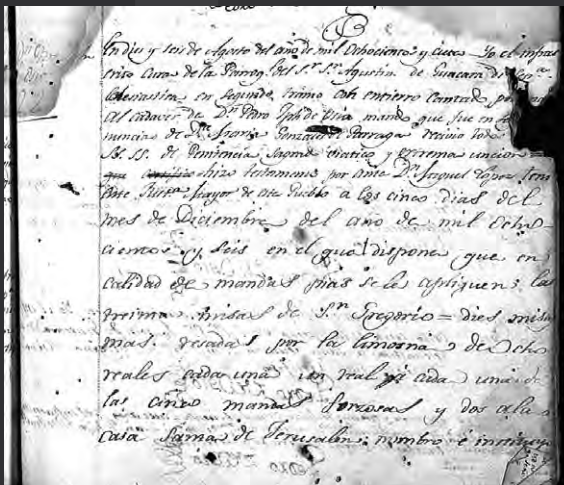 En dies y seis de Agosto del año de mil Ochocientos y cinco Yo el infras
crito Cura de la Parroq.l del S.r S.n Agustin de Guacara di
en segundo tramo con entierro cantado
al cadaver de D.n Pedro Jph de marido que fue en
nuncias de D.ña Maria Gonzales Parraga vecino todos
SS. SS. de Penitencia, Sagrado viatico, y extrema uncion
hizo testamento por ante D.n Miguel Lopes Teni
ente Justicia Mayor de este Pueblo a los cinco dias del
mes de Diciembre del año de mil Ocho
cientos y seis en el qual dispone que en
calidad de mandas pias se le apliquen; las
treinta misas de S.n Gregorio = dies misas
mas resadas por la limosna de Ocho
reales cada una un real cada una de
las cinco mandas forzosas y dos a la
casa Santa de Jerusalen; nombró é instituyo